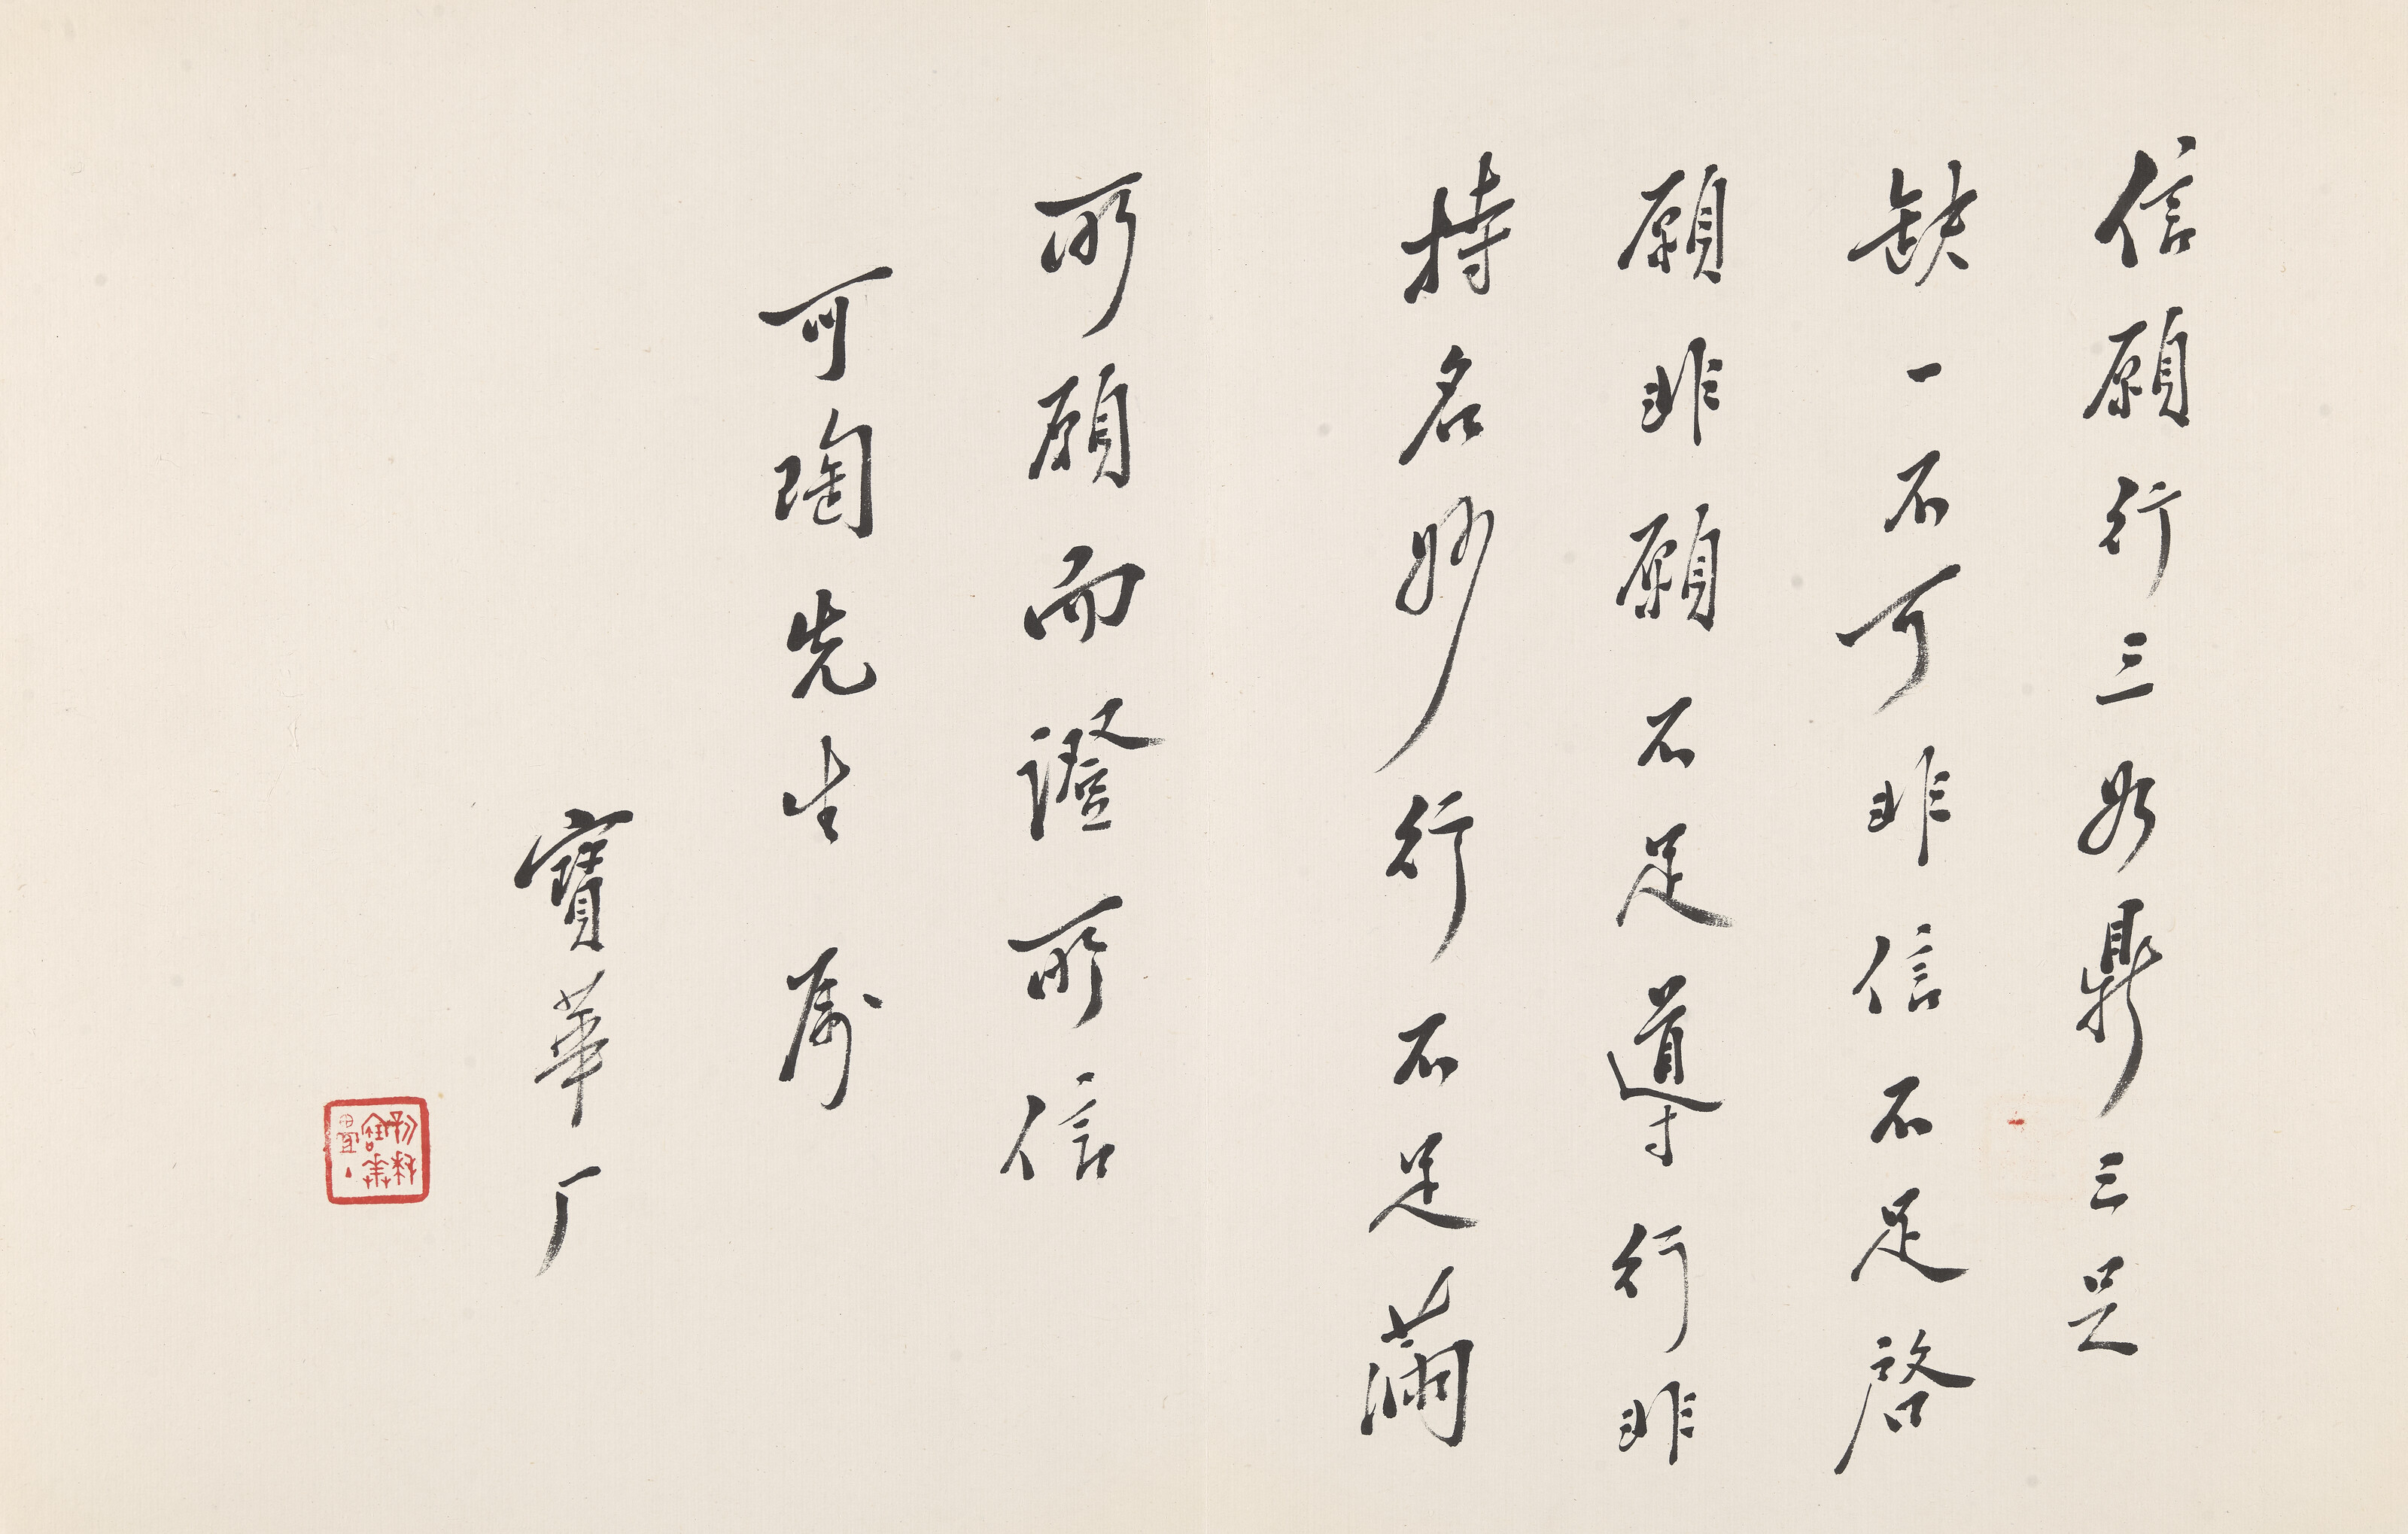 信願行三如鼎三足
缺一不可非信不足啓
願非願不足導行非
持名妙行不足滿
所願而證所信
可陶先生屬
寶華厂